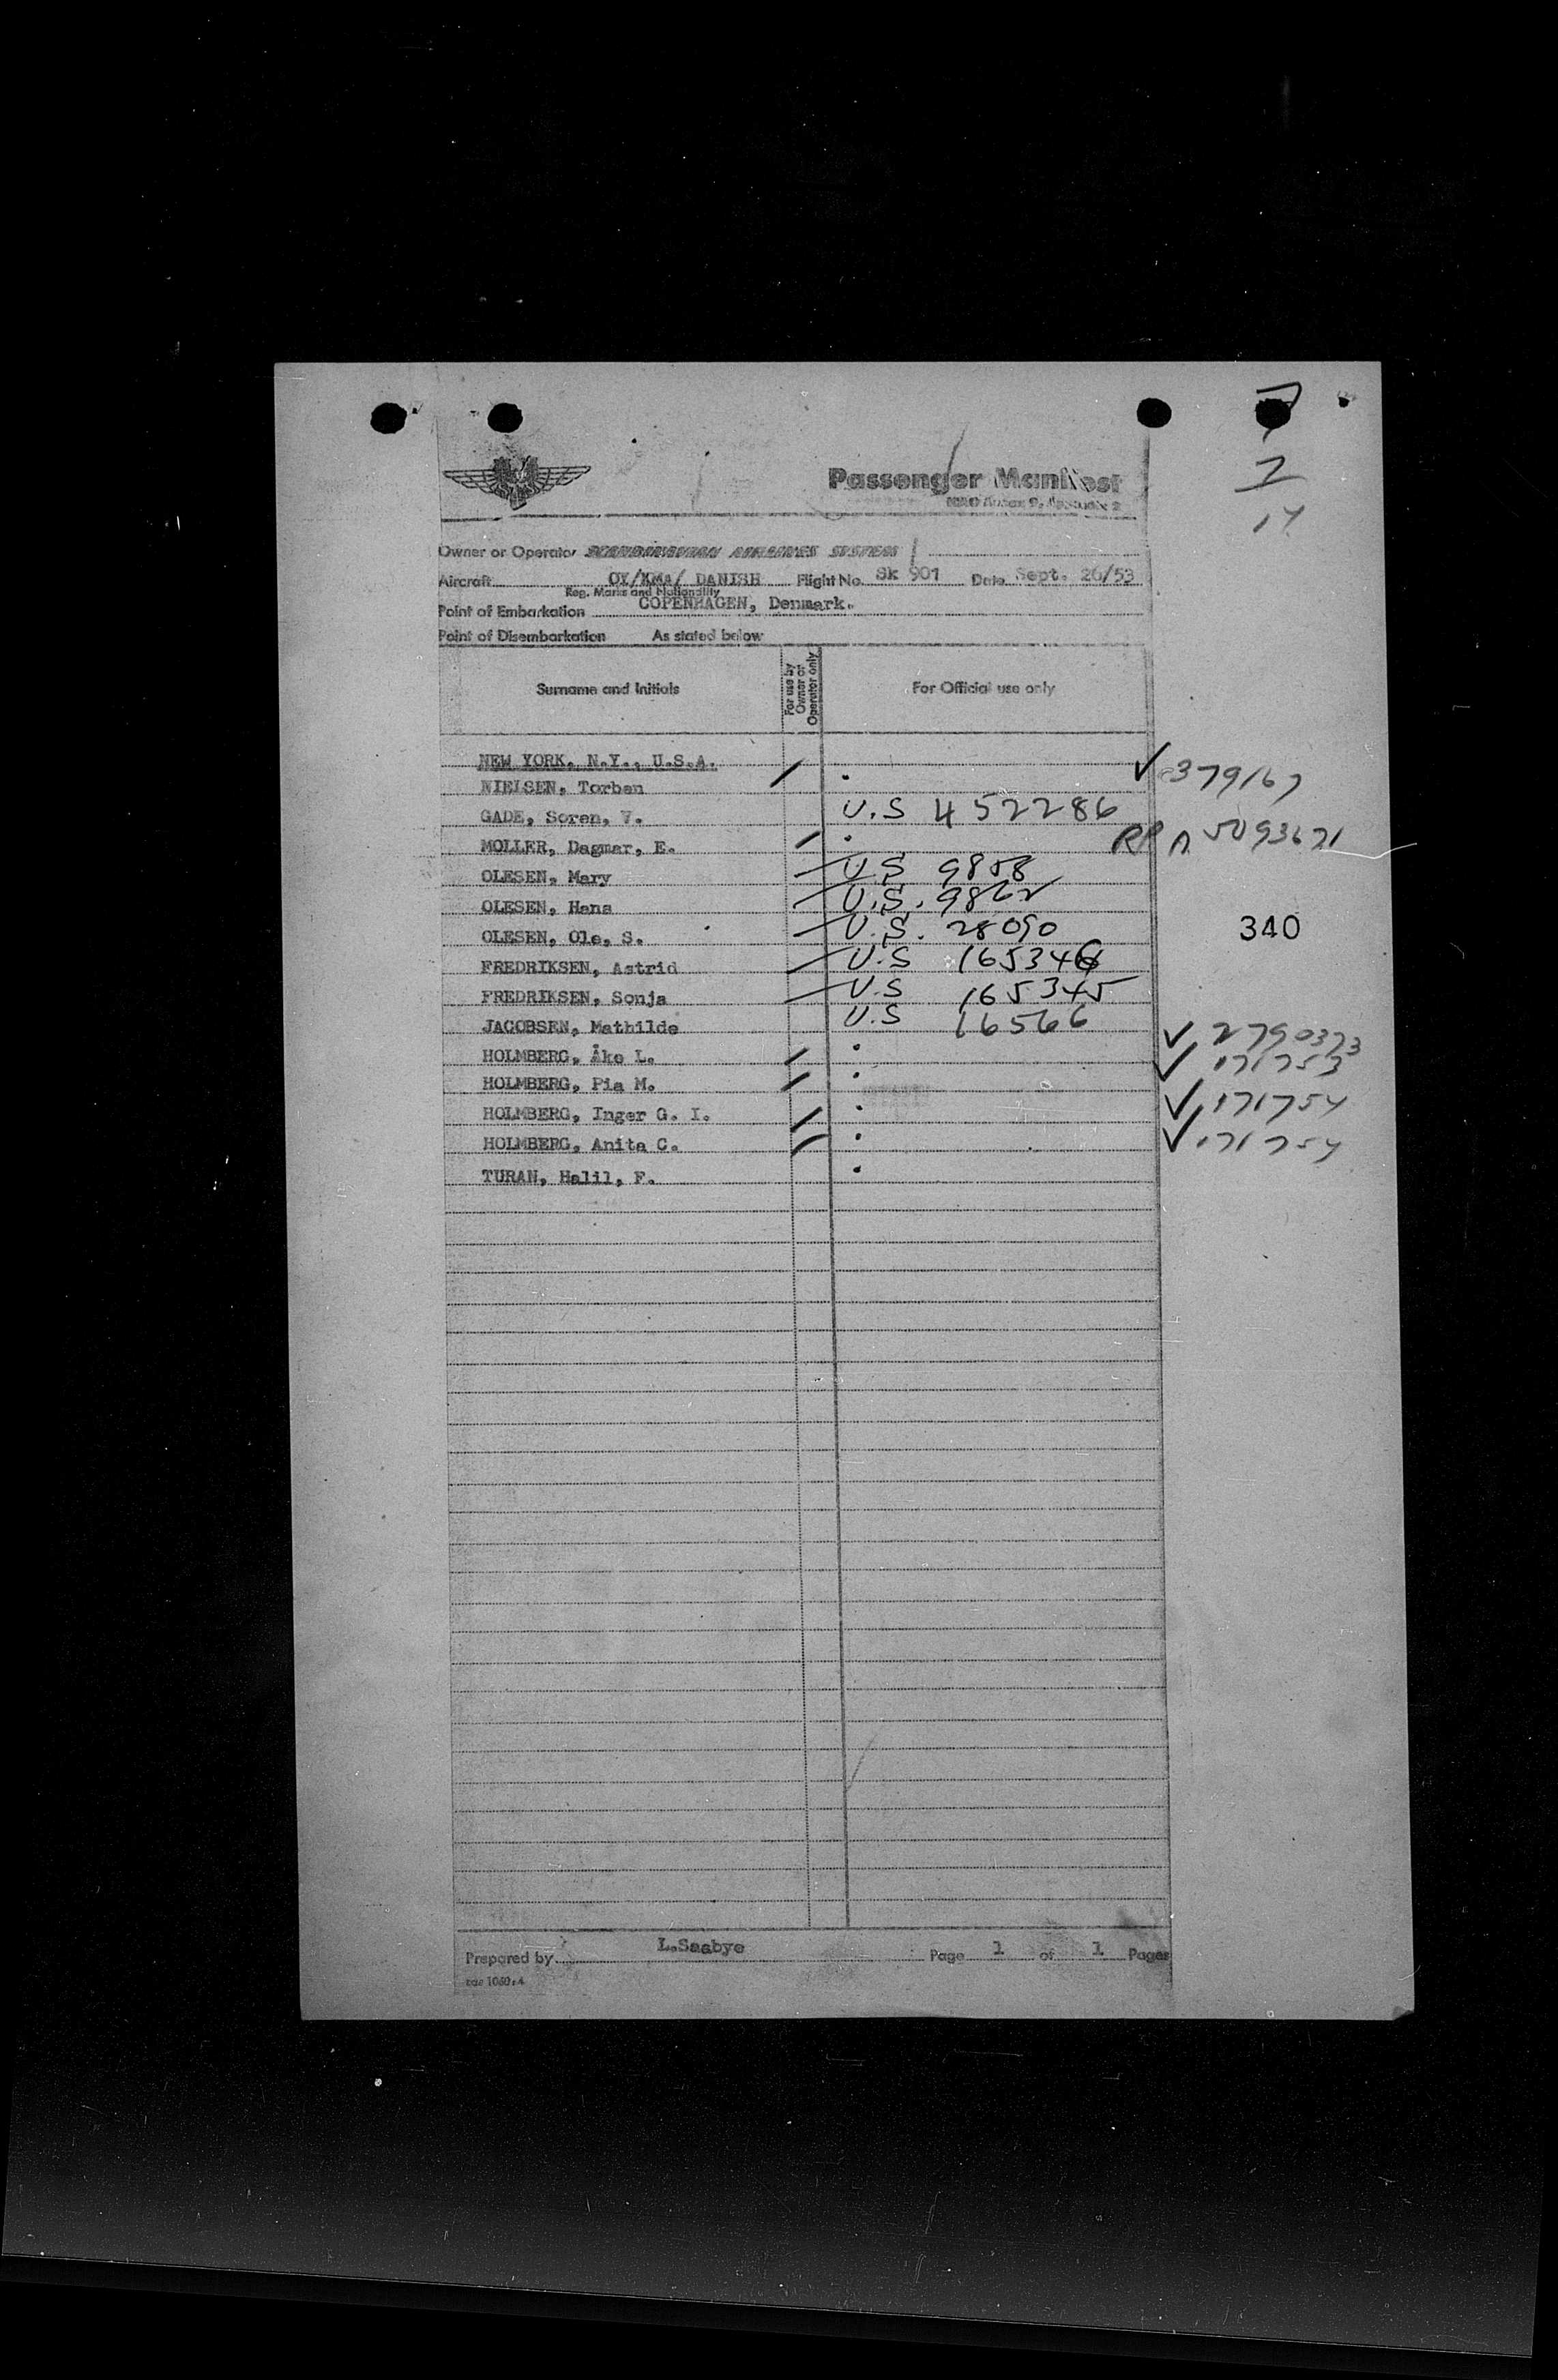 7
7
14
Passenger Manifest
ICAO Annex 9, Appendix 2
Owner or Operator SCANDINAVIAN AIRLINES SYSTEM
Aircraft OY/KMA/ DANISH Flight No. Sk 901 Date Sept. 26/53
Reg. Marks and Nationality
Point of Embarkation COPENHAGEN, Denmark.
Point of Disembarkation As stated below
Surname and Initials For use by Owner or Operator only For Official use only
NEW YORK, N.Y., U.S.A.
NIELSEN, Torben ✓ 379167
GADE, Soren, V. U.S 452286
MOLLER, Dagmar, E. RP A 5093671
OLESEN, Mary U.S 9858
OLESEN, Hans U.S. 9862
OLESEN, Ole, S. U.S. 28090
340
FREDRIKSEN, Astrid U.S 165346
FREDRIKSEN, Sonja U.S 165345
JACOBSEN, Mathilde U.S 16566
HOLMBERG, Åke L. ✓ 2790373
HOLMBERG, Pia M. ✓ 171753
HOLMBERG, Inger G. I. ✓ 171754
HOLMBERG, Anita C. ✓ 171754
TURAN, Halil, F.
Prepared by L.Saabye Page 1 of 1 Pages